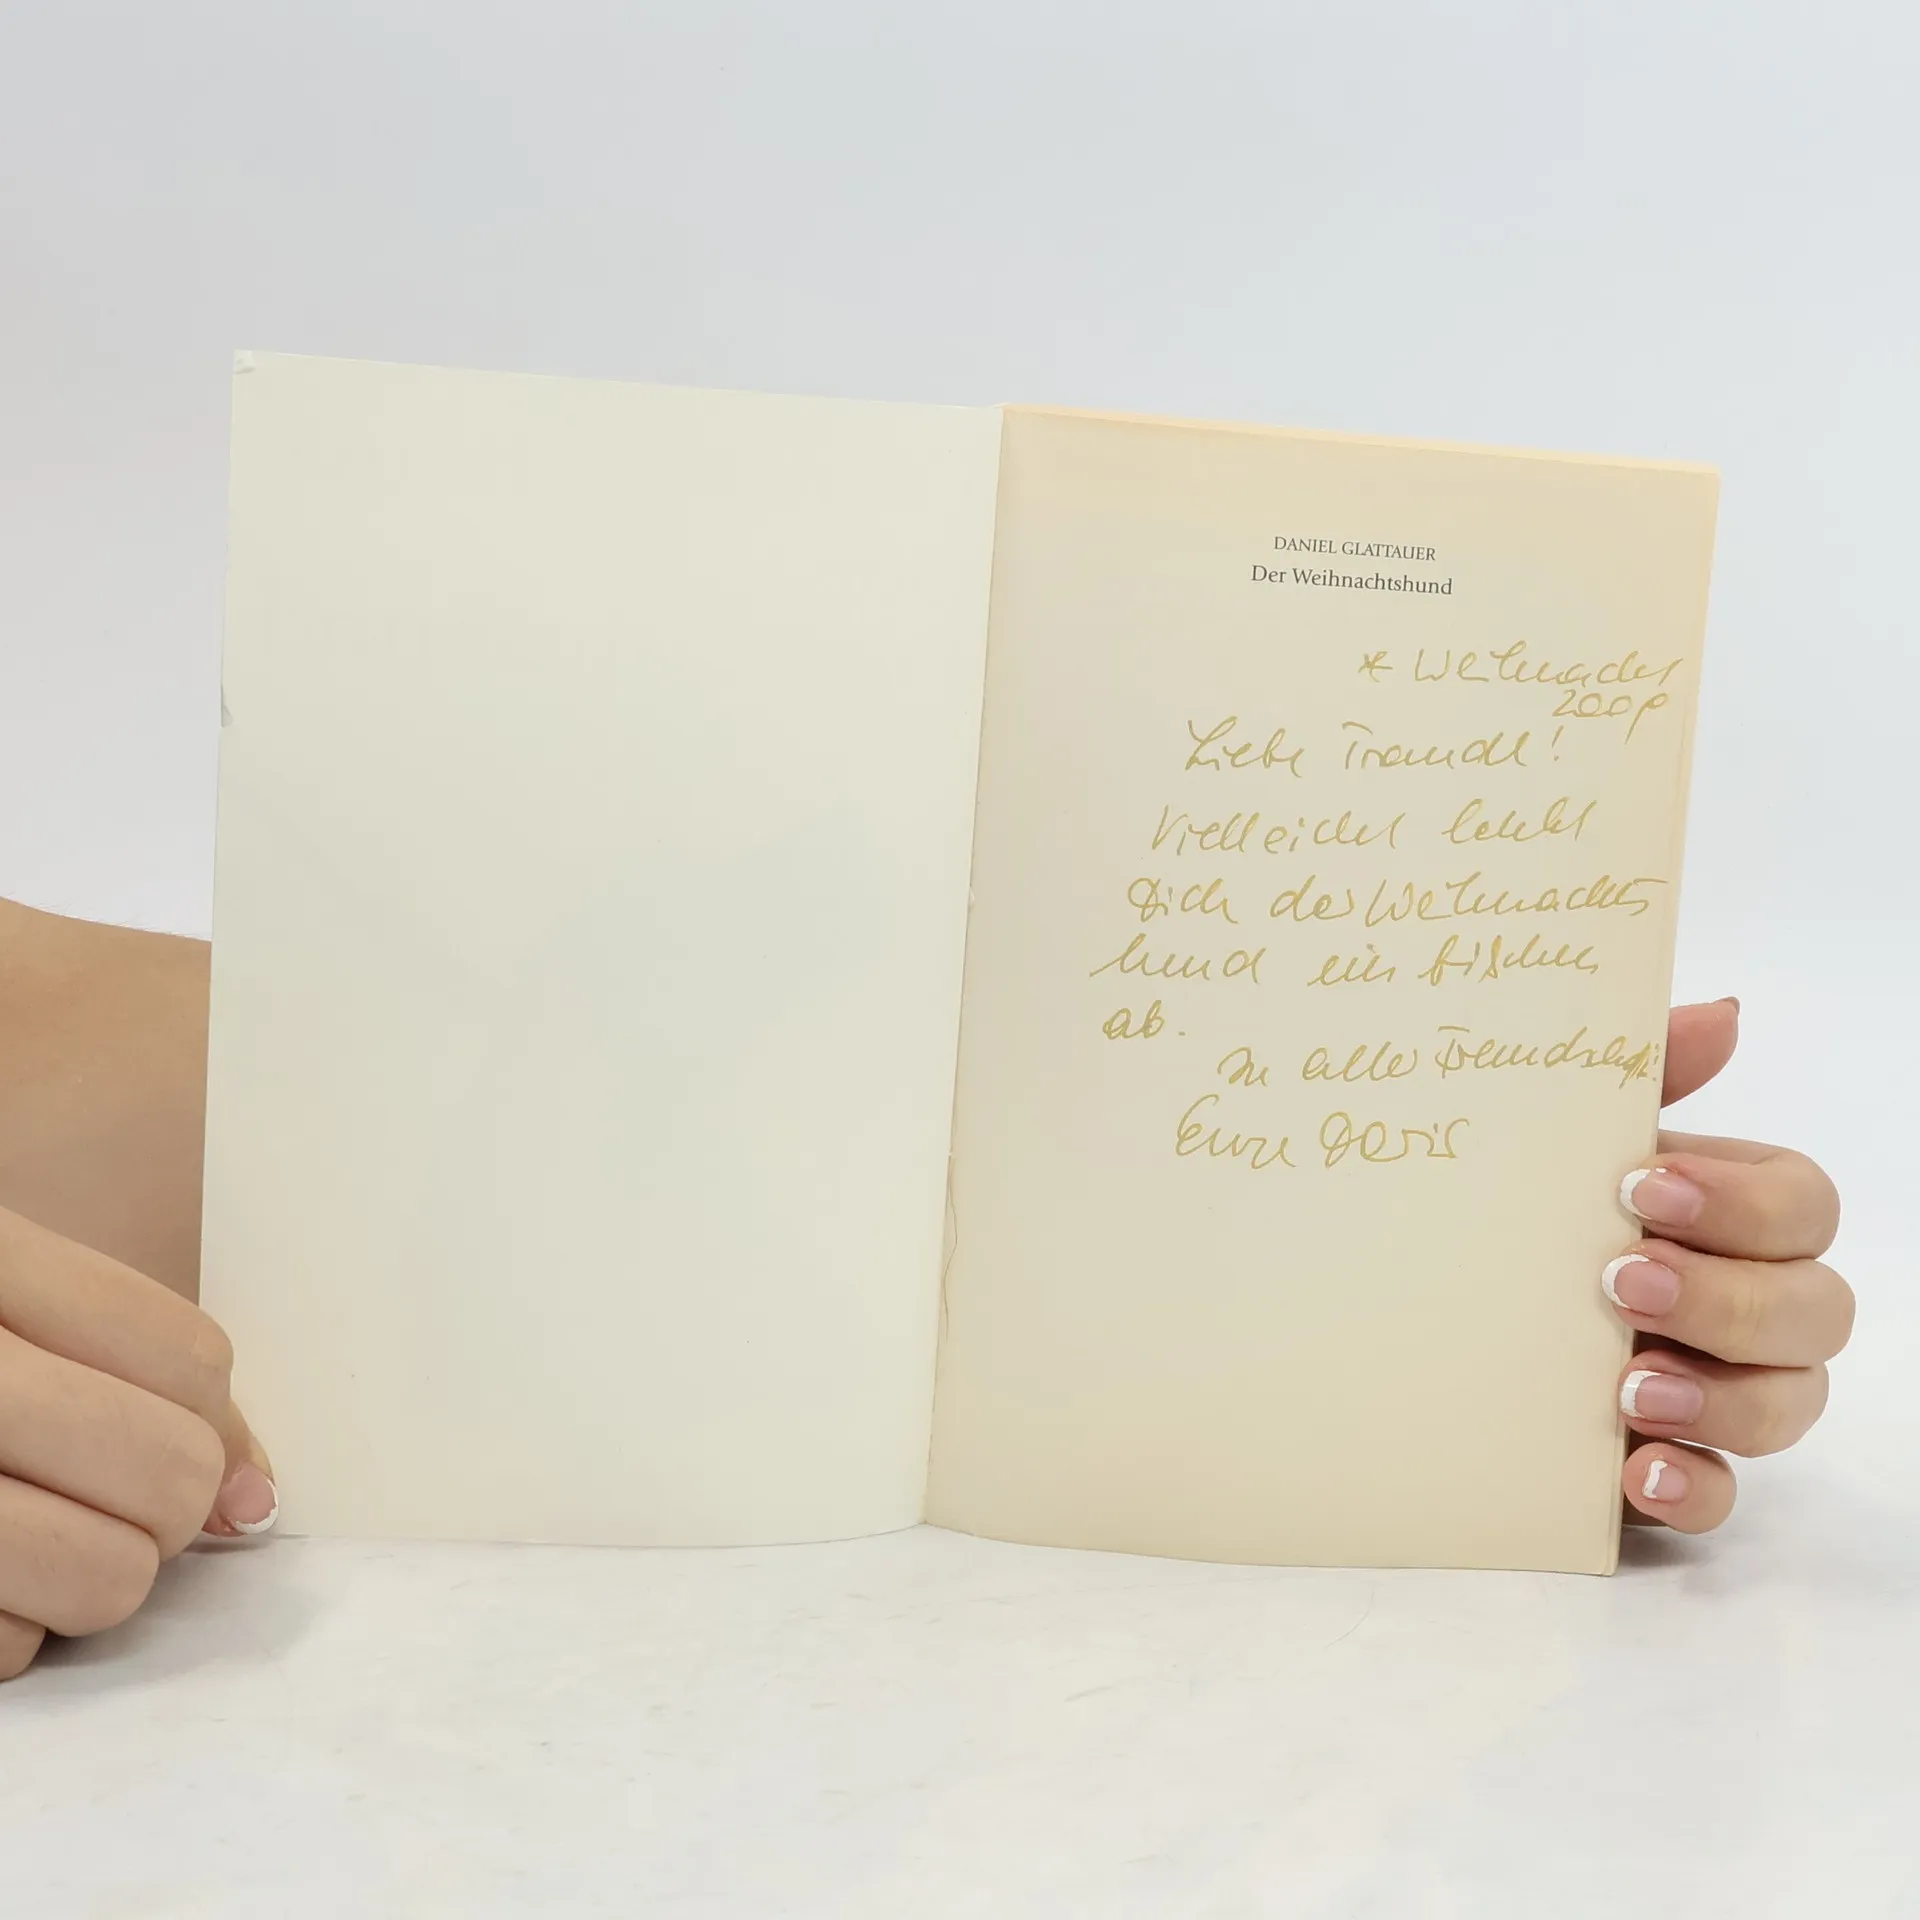 DANIEL GLATTAUER
Der Weihnachtshund
* Weihnachten
2009
Liebe Traudl!
Vielleicht lenkt
Dich der Weihnachts
hund ein bißchen
ab.
In aller Freundschaft!
Eure Doris